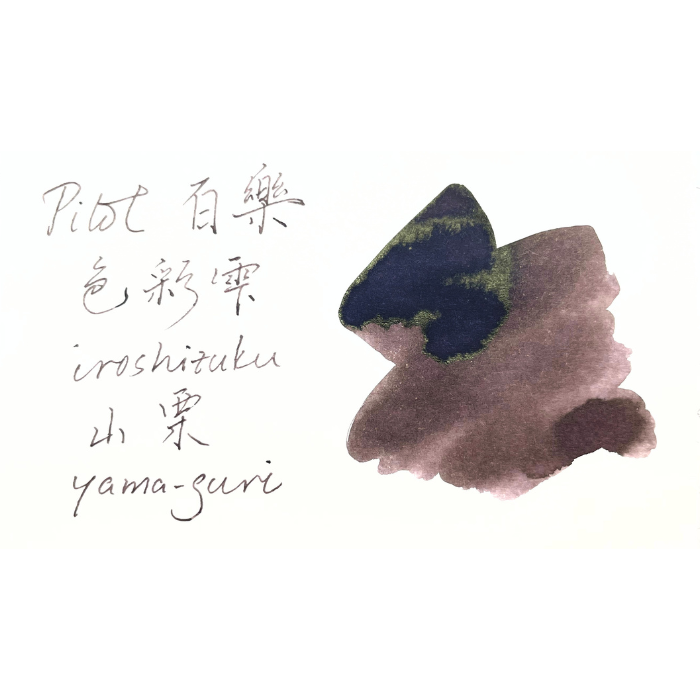 Pilot 百樂
色彩雫
iroshizuku
山栗
yama-guri